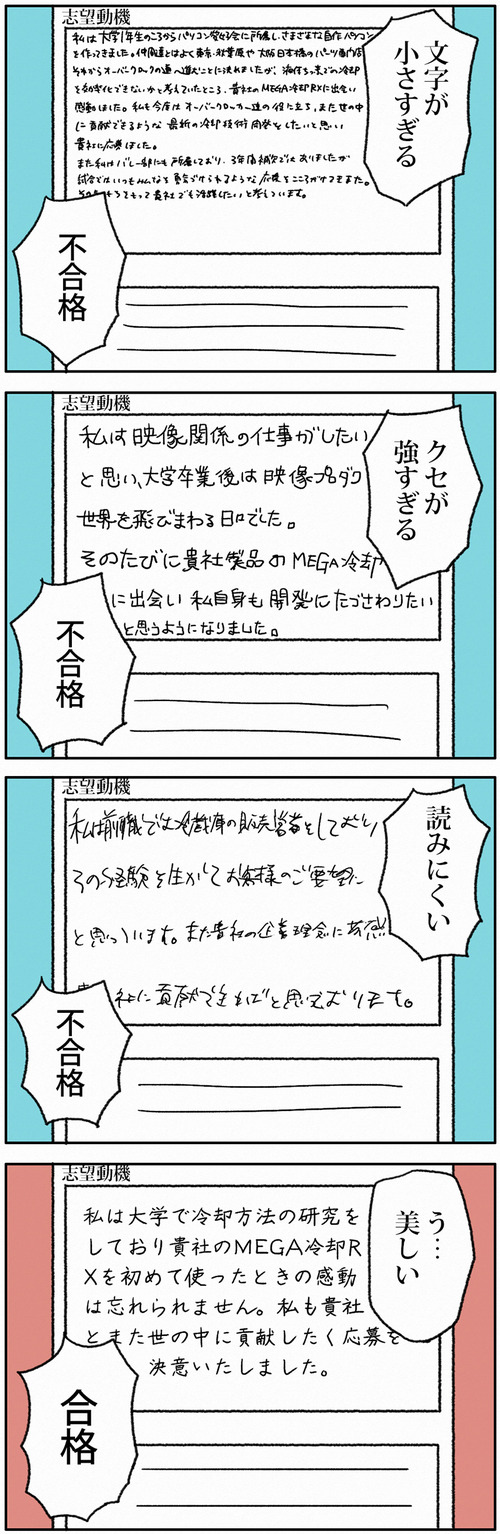 志望動機
文字が
小さすぎる
私は大学1年生のころからパソコン
に所属し、さまざまな自作パソコン
を作ってきました。仲間達とはよく東京・秋葉原や大阪日本橋のパーツ専門店
オーバークロックの道へ進むことに
ましたが、液体ちっ素での冷却
できないかと考えていたところ、貴社のMEGA冷却RXに出会い
感動しました。私も今度はオーバークロッカー達の役に立ち、また世の中
に貢献できるような最新の冷却技術開発をしたいと思い
貴社に応募しました。
また私はバレー部にも所属しており、3年間補欠ではありましたが
試合ではいつもみんなを勇気づけられるような応援をこころがけてきました。
もって貴社でも活躍したいと考えています。
不合格
志望動機
クセが
強すぎる
私は映像関係の仕事がしたい
と思い、大学卒業後は映像プロダク
世界を飛びまわる日々でした。
そのたびに貴社製品のMEGA冷却
に出会い私自身も開発にたづさわりたい
と思うようになりました。
不合格
志望動機
読みにくい
私は前職では冷蔵庫の販売営業をしており
その経験を生かしてお客様のご要望に
と思っています。また貴社の企業理念に共感
社に貢献できればと思っております。
不合格
志望動機
う…
美しい
私は大学で冷却方法の研究を
しており貴社のMEGA冷却R
Xを初めて使ったときの感動
は忘れられません。私も貴社
とまた世の中に貢献したく応募を
決意いたしました。
合格